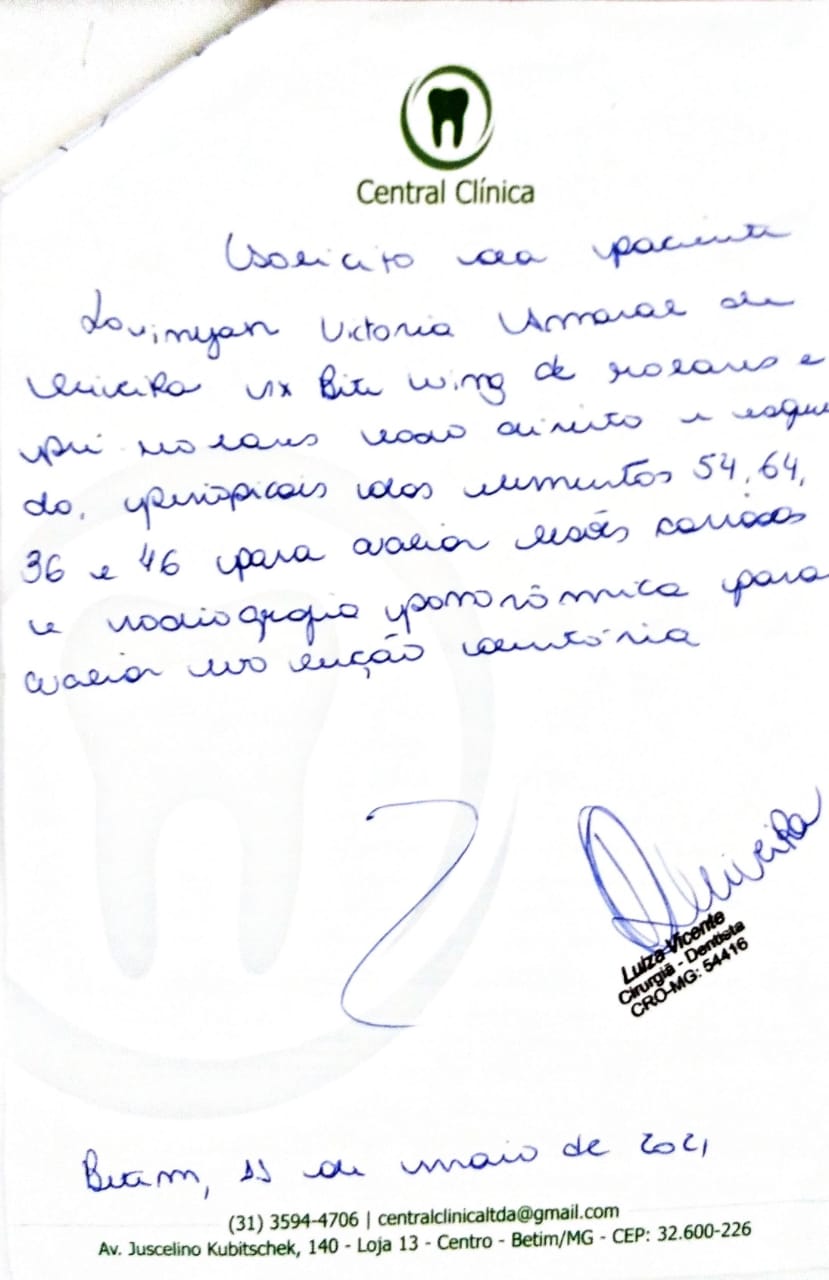 Central Clínica
Solicito da paciente
Victoria Amaral de
Oliveira rx Bite Wing de molares e
pré molares lado direito e esquer
do, periapicais dos elementos 54, 64,
36 e 46 para avaliar lesões cariosas
e radiografia panorâmica para
avaliar evolução dentária
Oliveira
Luiza Vicente
Cirurgiã - Dentista
CRO-MG: 54416
Betim, 11 de maio de 2021
(31) 3594-4706 | centralclinicaltda@gmail.com
Av. Juscelino Kubitschek, 140 - Loja 13 - Centro - Betim/MG - CEP: 32.600-226